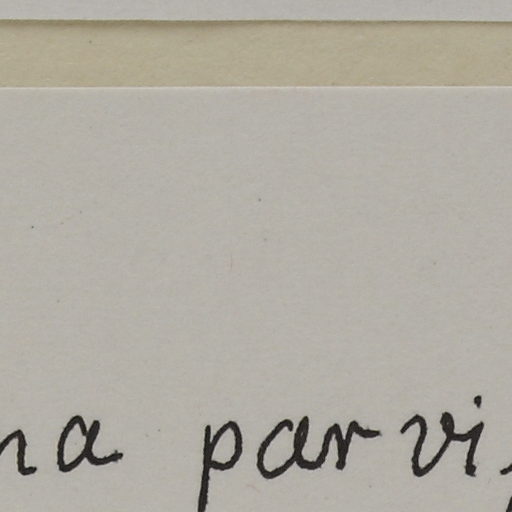 na parvi